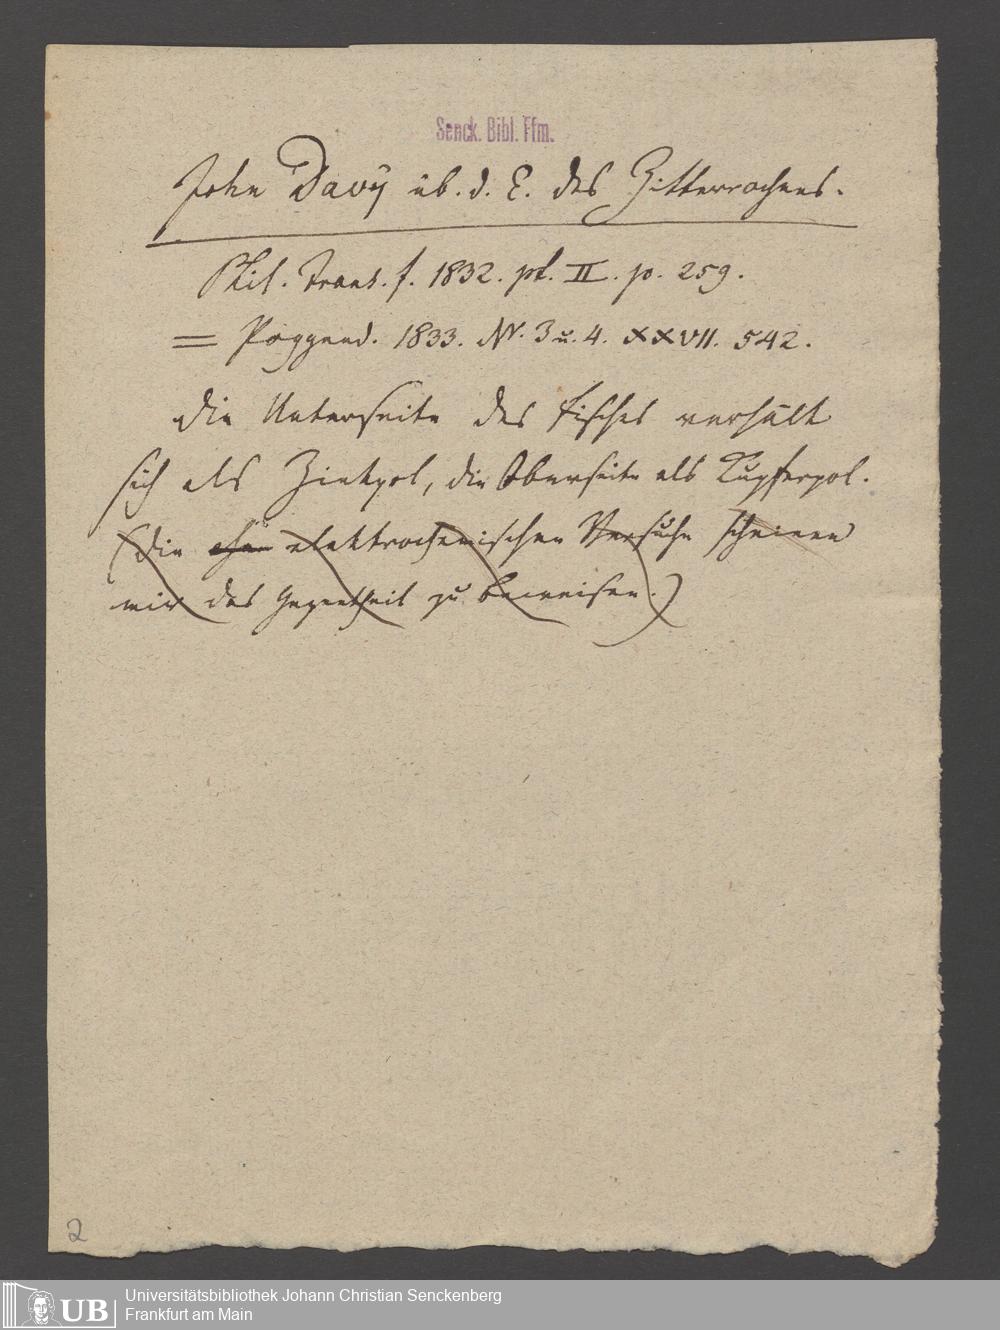 Senck. Bibl. Ffm.
John Davy üb. d. E. des Zitterrochens.
Phil. Trans. f. 1832. pt. II. p. 259.
= Poggend. 1833. Nr. 3 u. 4. XXVII. 542.
die Unterseite des Fisches verhält
sich als Zinkpol, die Oberseite als Kupferpol.
(die elektrochemischen Versuche scheinen
mir das Gegentheil zu beweisen.)
2
UB
Universitätsbibliothek Johann Christian Senckenberg
Frankfurt am Main